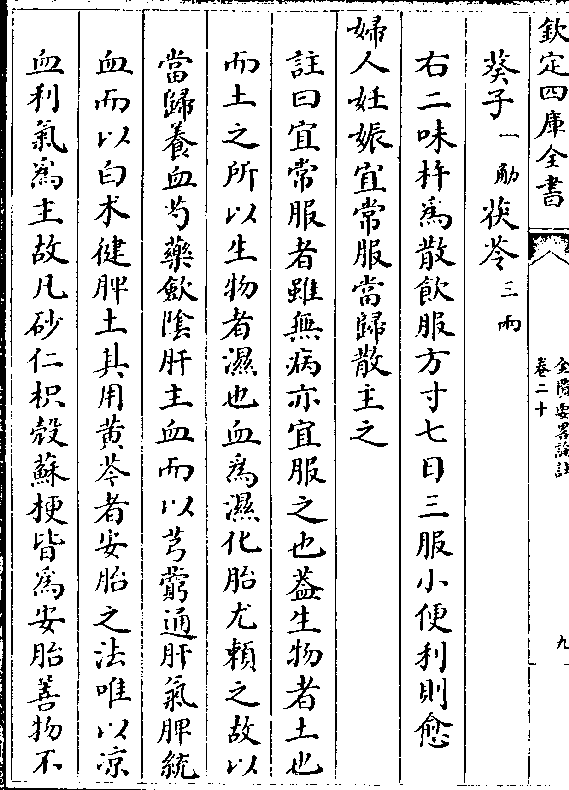 欽定四庫全書
金匱要略論註
卷二十
九
葵子一觔茯苓三兩
右二味杵為散飲服方寸匕日三服小便利則愈
婦人妊娠宜常服當歸散主之
註曰宜常服者雖無病亦宜服之也葢生物者土也
而土之所以生物者濕也血為濕化胎尤賴之故以
當歸養血芍藥歛隂肝主血而以芎藭通肝氣脾統
血而以白术健脾土其用黄芩者安胎之法唯以凉
血利氣為主故凡砂仁枳殻蘇梗皆為安胎善物不